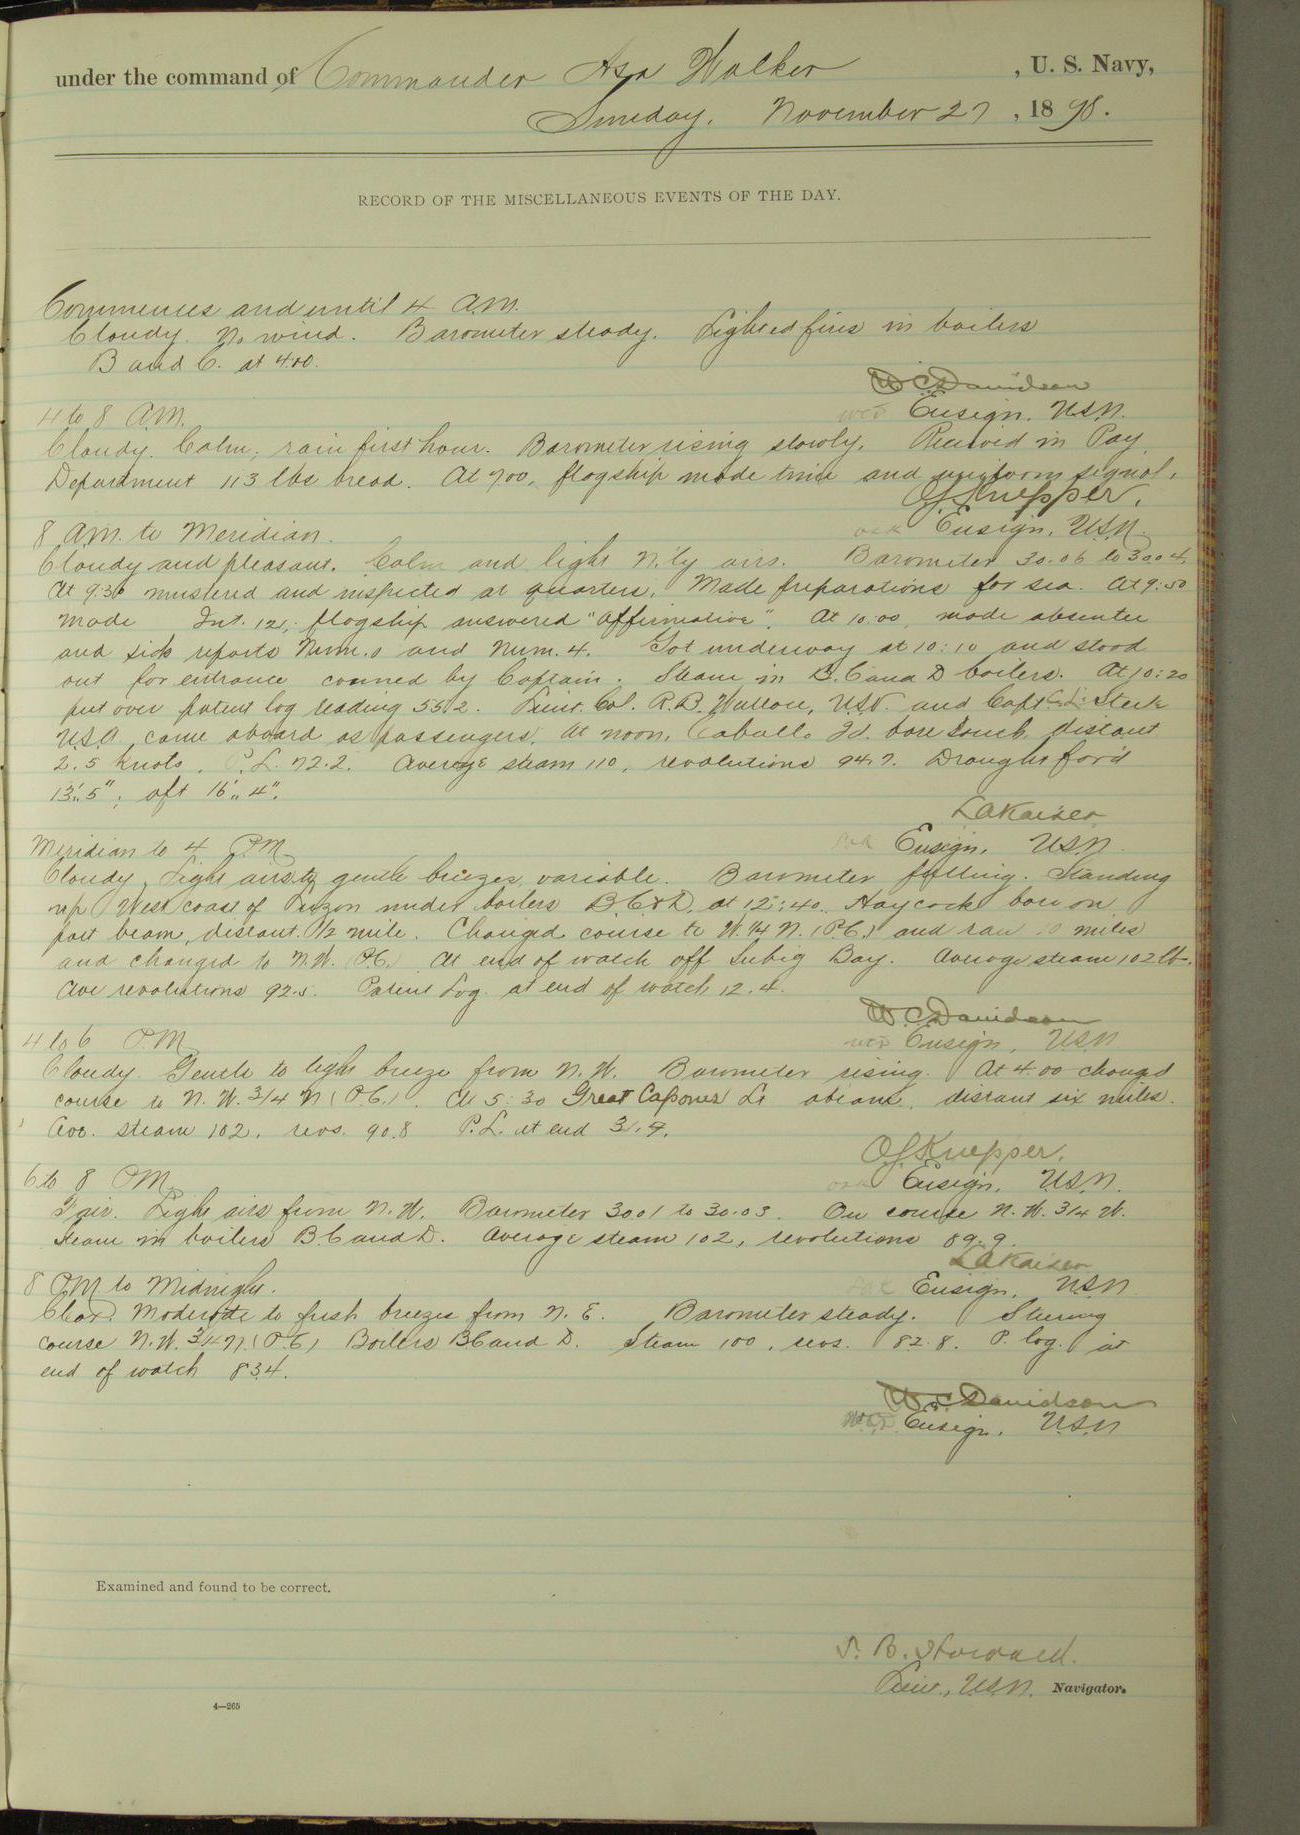 under the command of Commander Asa Walker, U. S. Navy,
Sunday, November 27, 1898.
RECORD OF THE MISCELLANEOUS EVENTS OF THE DAY.
Commences and until 4 A.M.
Cloudy. No wind. Barometer steady. Lighted fires in boilers
B and C. at 4.00.
W C Davidson
WCD Ensign, U.S.N.
4 to 8 A.M.
Cloudy. Calm, rain first hour. Barometer rising slowly. Received in Pay
Department 113 lbs bread. At 7.00, flagship made time and uniform signal.
O.J. Knepper.
Ensign, U.S.N.
8 A.M. to Meridian.
Cloudy and pleasant. Calm and light N'ly airs. Barometer 30.06 to 30.04.
At 9:30 mustered and inspected at quarters. Made preparations for sea. At 9:50
made Int. 121; flagship answered "affirmative". At 10.00, made absentee
and sick reports Num. 0 and Num. 4. Got underway at 10:10 and stood
out for entrance conned by Captain. Steam in B. C and D boilers. At 10:20
put over patent log reading 55.2. Lieut. Col. R.B. Wallace, U.S.V. and Capt Steele
U.S.A. came aboard as passengers. At noon, Caballo Id. bore South distant
2.5 knots. P.L. 72.2. Average steam 110, revolutions 94.7. Draught for'd
13'.. 5"; aft 16'.. 4".
L A Kaiser
Ensign, U.S.N.
Meridian to 4 P.M.
Cloudy, Light airs to gentle breezes, variable. Barometer falling. Standing
up West coast of Luzon under boilers B.C & D. at 12:40. Haycock bore on
port beam, distant 1/2 mile. Changed course to W. 1/4 N. (P.C.) and ran 10 miles
and changed to N.W. (P.C.) At end of watch off Subig Bay. Average steam 102 lb.
Ave revolutions 92.5. Patent Log at end of watch 12.4.
W. C Davidson
WCD Ensign, U.S.N
4 to 6 P.M.
Cloudy. Gentle to light breeze from N.W. Barometer rising. At 4.00 changed
course to N.W. 3/4 N (P.C.). At 5:30 Great Capones Lt abeam, distant six miles.
Ave. steam 102, revs. 90.8 P.L. at end 31.9.
O J Knepper.
Ensign, U.S.N.
6 to 8 P.M.
Fair. Light airs from N.W. Barometer 30.01 to 30.03. On course N.W. 3/4 W.
Steam in boilers B. C and D. Average steam 102, revolutions 89.9.
L A Kaiser
LAK Ensign, U.S.N.
8 P.M. to Midnight.
Clear. Moderate to fresh breezes from N.E. Barometer steady. Steering
course N.W. 3/4 N. (P.C.) Boilers B C and D. Steam 100, revs. 82.8. P. log. at
end of watch 83.4.
W. C Davidson
WCD Ensign, U.S.N
Examined and found to be correct.
Lieut., U.S.N. Navigator.
4—265